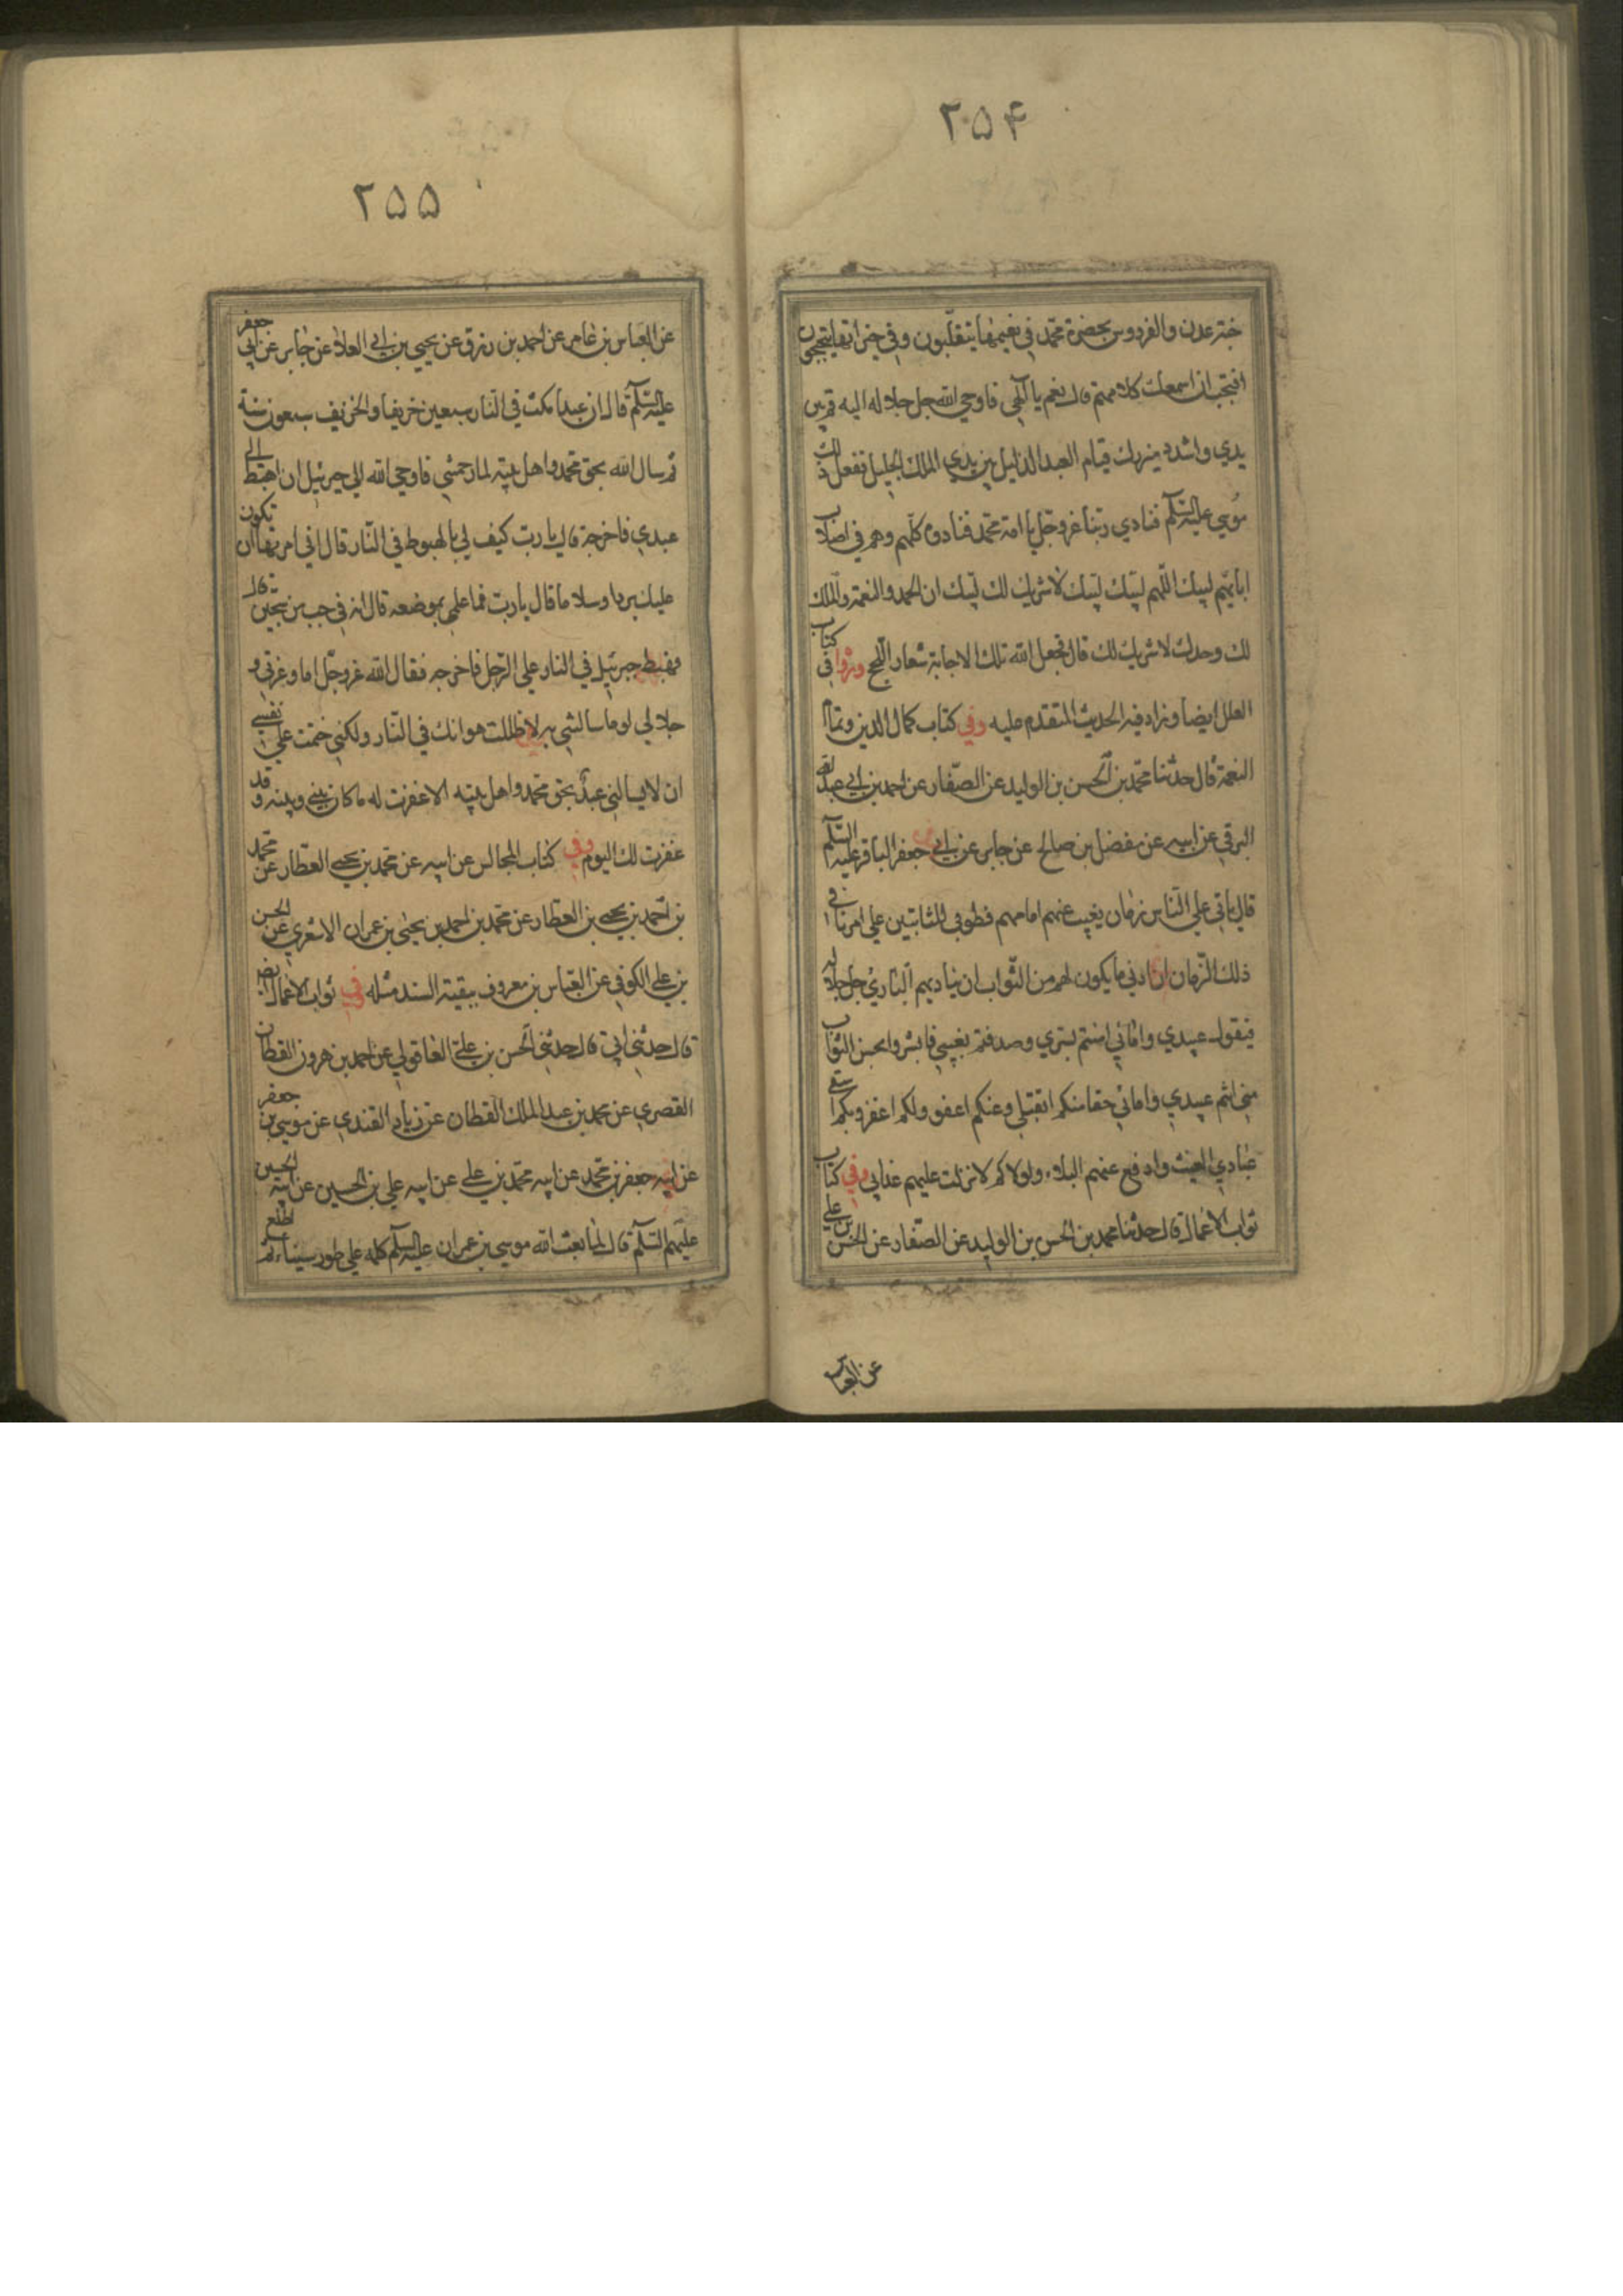 ۲۵۴
جنة عدن والفردوس بحضرة محمد في نعيمها يتقلبون وفي خيراتها يتبجحون
افتحب ان اسمعك كلامهم قال نعم يا الهي فاوحي الله جل جلاله اليه قم بين
يدي واشدد ميزرك قيام العبد الذليل بين يدي الملك الجليل ففعل ذلك
موسي عليه السلم فنادي ربنا عز وجل يا امة محمد فنادوه كلهم وهم في اصلاب
ابائهم لبيك اللهم لبيك لبيك لا شريك لك لبيك ان الحمد والنعمة والملك
لك وحدك لا شريك لك قال فجعل الله تلك الاجابة شعار الحج ورواه في كتاب
العلل ايضا وزاد فيه الحديث المتقدم عليه وفي كتاب كمال الدين وتمام
النعمة قال حدثنا محمد بن الحسن بن الوليد عن الصفار عن احمد بن ابي عبد الله
البرقي عن ابيه عن مفضل بن صالح عن جابر عن ابي جعفر الباقر عليه السلم
قال ياتي علي الناس زمان يغيب عنهم امامهم فطوبي للثابتين علي امرنا في
ذلك الزمان ان ادني ما يكون لهم من الثواب ان يناديهم الباري جل جلاله
فيقول عبيدي وامائي امنتم بسري وصدقتم بغيبي فابشروا بحسن الثواب
مني انتم عبيدي وامائي حقا منكم اتقبل وعنكم اعفو ولكم اغفر وبكم اسقي
عبادي الغيث وادفع عنهم البلاء ولولاكم لانزلت عليهم عذابي وفي كتاب
ثواب الاعمال قال حدثنا محمد بن الحسن بن الوليد عن الصفار عن الحسن بن علي
عن العباس
۲۵۵
عن العباس بن عامر عن احمد بن رزق عن يحيي بن ابي العلا عن جابر عن ابي جعفر
عليه السلم قال ان عبدا مكث في النار سبعين خريفا والخريف سبعون سنة
ثم سال الله بحق محمد واهل بيته لما رحمتني فاوحي الله الي جبرئيل ان اهبط الي
عبدي فاخرجه قال يا رب كيف لي بالهبوط في النار قال اني امرتها ان تكون
عليك بردا وسلاما قال يا رب فما علمي بموضعه قال انه في جب من سجين قال
فهبط جبرئيل في النار علي الرجل فاخرجه فقال الله عز وجل اما وعزتي و
جلالي لو ما سالتني به لاظللت هوانك في النار ولكني ختمت علي نفسي
ان لا يسالني عبد بحق محمد واهل بيته الا غفرت له ما كان بيني وبينه وقد
غفرت لك اليوم وفي كتاب المجالس عن ابيه عن محمد بن يحيي العطار عن محمد
بن احمد بن يحيي بن العطار عن محمد بن احمد بن يحيي بن عمران الاشعري عن الحسن
بن علي الكوفي عن العباس بن معروف ببقية السند مثله وفي ثواب الاعمال ايضا
قال حدثني ابي قال حدثني الحسن بن علي العاقولي عن احمد بن هرون القطان
القصري عن محمد بن عبد الملك القطان عن زياد القندي عن موسي بن جعفر
عن ابيه جعفر بن محمد عن ابيه محمد بن علي عن ابيه علي بن الحسين عن ابيه الحسين
عليهم السلم قال لما بعث الله موسي بن عمران عليه السلم كلمه علي طور سيناء ثم اطلع